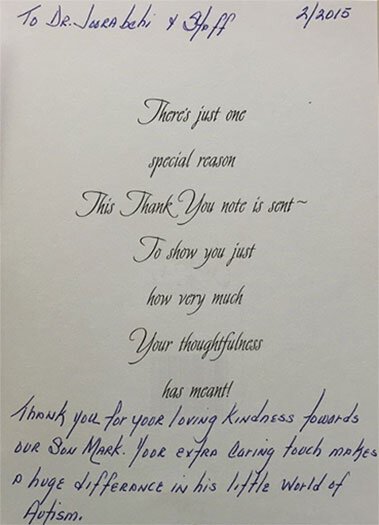 To Dr. Joorabchi & Staff 2/2015
There's just one
special reason
This Thank You note is sent~
To show you just
how very much
Your thoughtfulness
has meant!
Thank you for your loving kindness towards
our Son Mark. Your extra caring touch makes
a huge differance in his little world of
Autism.